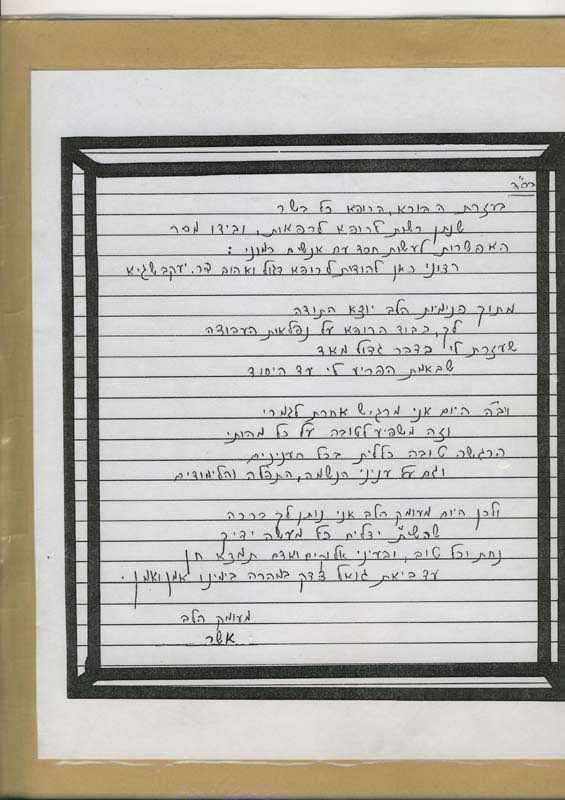 בס"ד
בעזרת הבורא, הרופא כל בשר
שנתן רשות לרופא לרפאות, ובידו מסר
האפשרות לעשות חסד עם אנשים כמוני:
רצוני כאן להודות לרופא דגול ואהוב דר. יעקב שגיא
מתוך פנימיות הלב יוצא התודה
לך, כבוד הרופא על נפלאות העבודה
שעזרת לי בדבר גדול מאד
שבאמת הפריע לי עד היסוד
וב"ה היום אני מרגיש אחרת לגמרי
וזה משפיע לטובה על כל מהותי
הרגשה טובה כללית בכל הענינים
וגם על עניני הנשמה, התפלה והלימודים
ולכן היום מעומק הלב אני נותן לך ברכה
שהשי"ת יצליח כל מעשה ידיך
נחת וכל טוב, ובעיני אלוקים ואדם תמצא חן
עד ביאת גואל צדק במהרה בימינו אמן ואמן.
מעומק הלב
אשר